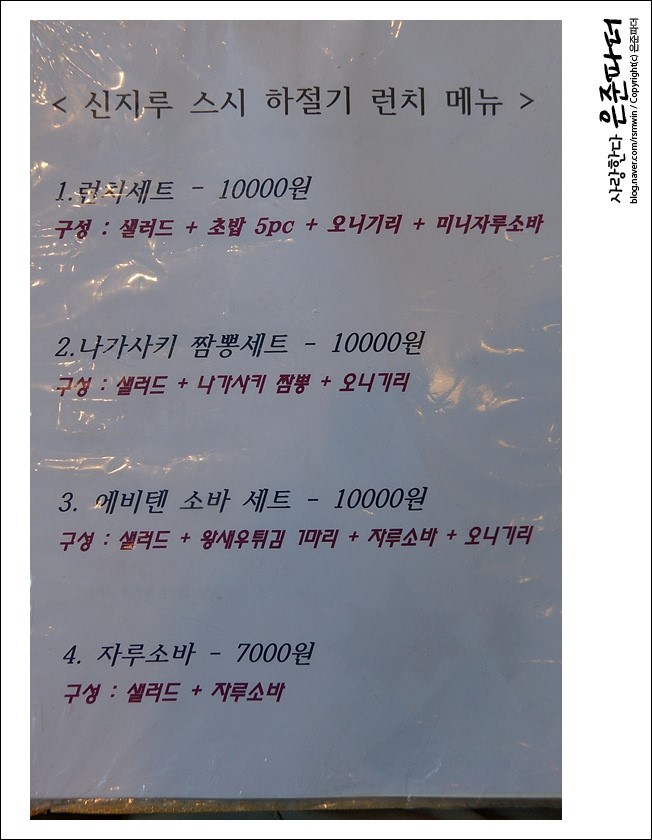 < 신지루 스시 하절기 런치 메뉴 >
1.런치세트 - 10000원
구성 : 샐러드 + 초밥 5pc + 오니기리 + 미니자루소바
2.나가사키 짬뽕세트 - 10000원
구성 : 샐러드 + 나가사키 짬뽕 + 오니기리
3. 에비텐 소바 세트 - 10000원
구성 : 샐러드 + 왕새우튀김 1마리 + 자루소바 + 오니기리
4. 자루소바 - 7000원
구성 : 샐러드 + 자루소바
사랑한다 은준파더
blog.naver.com/rsmwin / Copyright(c) 은준파더